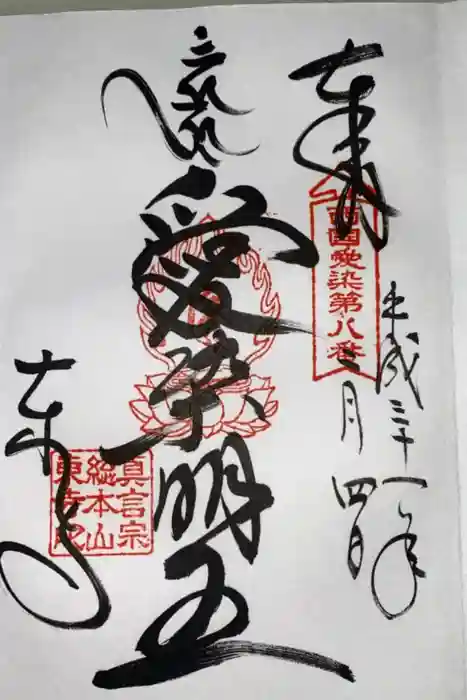 奉拝
西国愛染第八番
平成三十一年
二月四日
愛染明王
東寺
真言宗
総本山
東寺印